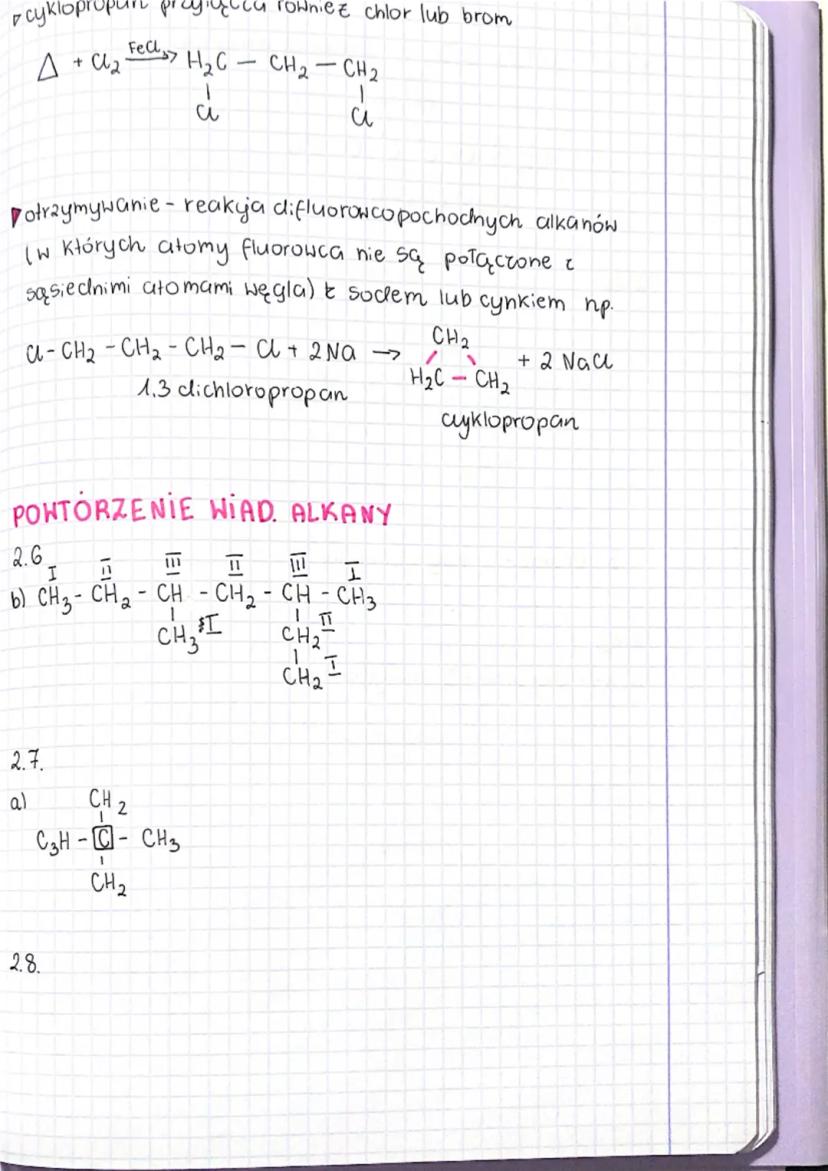 cyklopropan przyłącza również chlor lub brom
△ + Cl₂ FeCl₃→ H₂C – CH₂ – CH₂
Cl Cl
otrzymywanie - reakcja difluorowcopochodnych alkanów
(w których atomy fluorowca nie są połączone z
sąsiednimi atomami węgla) z sodem lub cynkiem np.
Cl-CH₂-CH₂-CH₂-Cl + 2Na → CH₂ H₂C-CH₂ + 2 NaCl
1.3 dichloropropan
cyklopropan
POWTÓRZENIE WIAD. ALKANY
2.6
I II III II III I
b) CH₃-CH₂-CH-CH₂-CH-CH₃
CH₃ I CH₂ II
CH₂ I
2.7.
a) CH₂
C₃H-C-CH₃
CH₂
2.8.